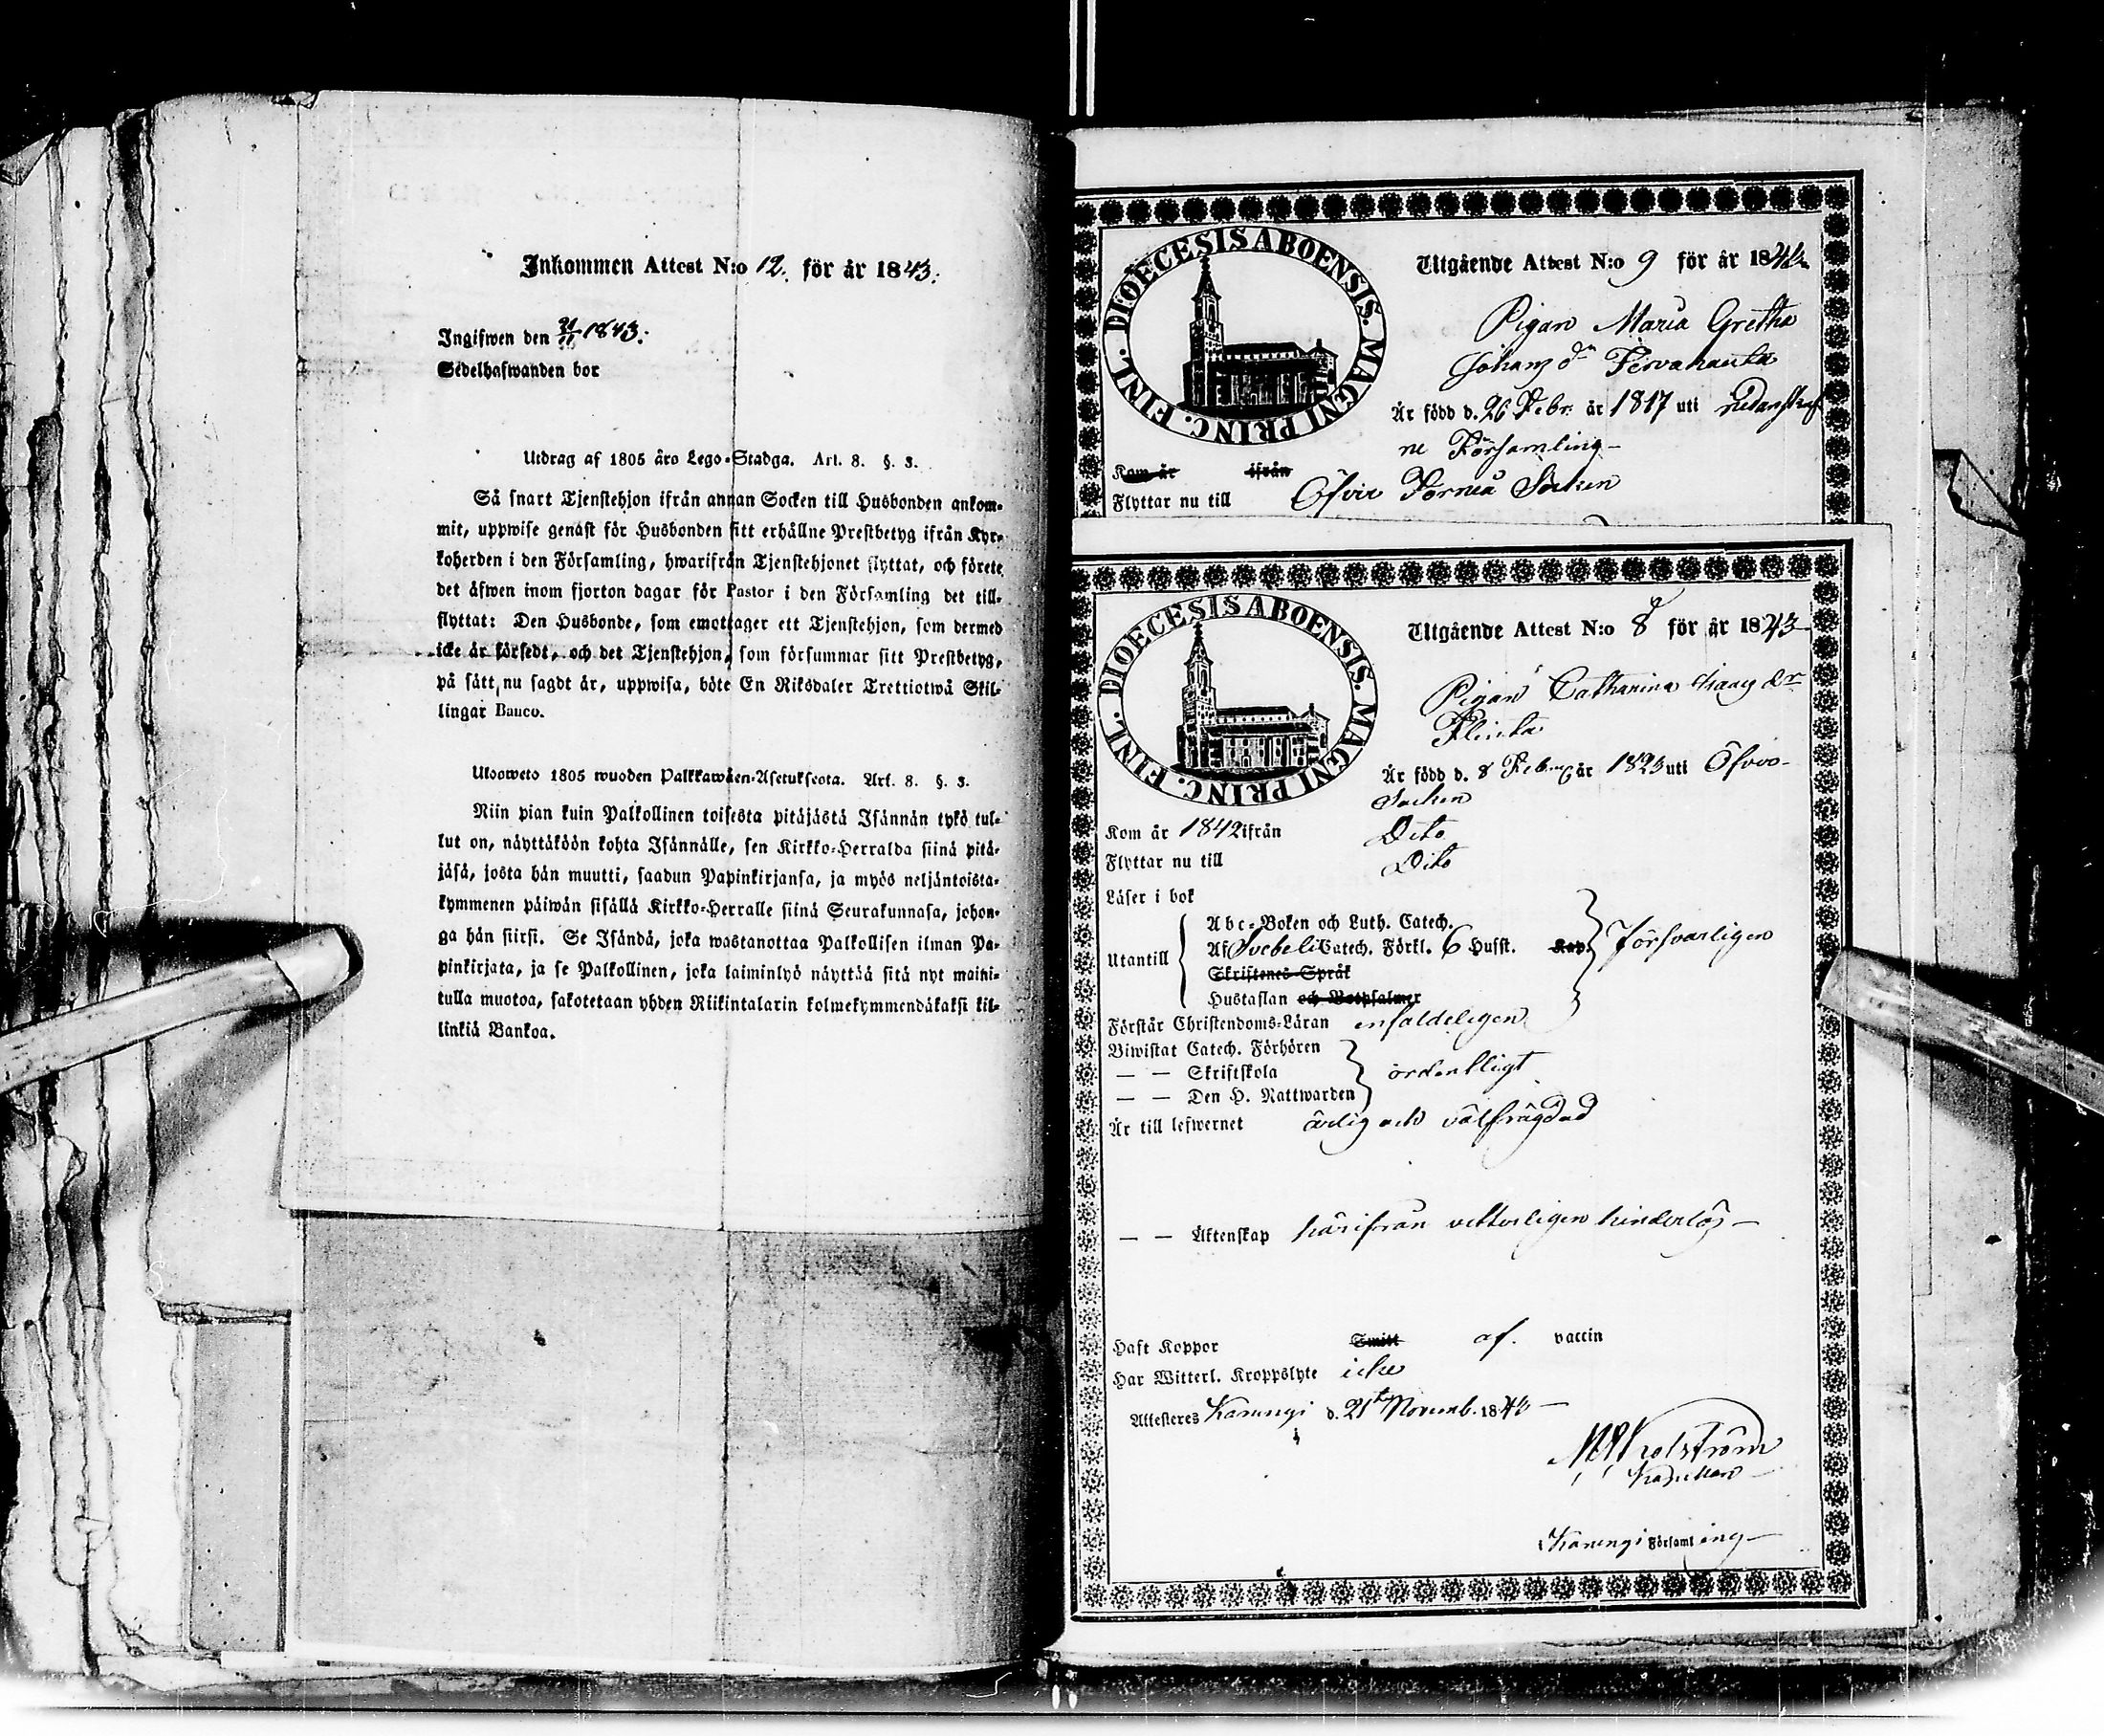 Inkommen Attest N:o 12. för år 1843.
Ingifwen den 21/11 1843.
Sedelhafwanden bor
Utdrag af 1805 års Lego-Stadga. Art. 8. §. 3.
Så snart Tjenstehjon ifrån annan Socken till Husbonden ankom-
mit, uppwise genast för Husbonden sitt erhållne Prestbetyg ifrån Kyr-
koherden i den Församling, hwarifrån Tjenstehjonet flyttat, och förete
det äfwen inom fjorton dagar för Pastor i den Församling det till-
flyttat: Den Husbonde, som emottager ett Tjenstehjon, som dermed
icke är försedt, och det Tjenstehjon, som försummar sitt Prestbetyg,
på sätt nu sagdt är, uppwisa, böte En Riksdaler Trettiotwå Skil-
lingar Banco.
Ulosweto 1805 wuoden Palkkawäen-Asetuksesta. Art. 8. §. 3.
Niin pian kuin Palkollinen toisesta pitäjästä Isännän tykö tul-
lut on, näyttäköön kohta Isännälle, sen Kirkko-Herralda siinä pitä-
jäsä, josta hän muutti, saadun Papinkirjansa, ja myös neljäntoista-
kymmenen päiwän sisällä Kirkko-Herralle siinä Seurakunnasa, johon-
ga hän siirsi. Se Isändä, joka wastanottaa Palkollisen ilman Pa-
pinkirjata, ja se Palkollinen, joka laiminlyö näyttää sitä nyt maini-
tulla muotoa, sakotetaan yhden Riikintalarin kolmekymmendäkaksi kil-
linkiä Bankoa.
DIOECESIS ABOENSIS. MAGNI PRINC. FINL.
Utgående Attest N:o 9 för år 184
Pigan Maria Gretha
Johans dr
Är född d. 26 Febr. år 1817 uti nedanskref
ne Församling
Kom år ifrån
Flyttar nu till Öfver Torneå Socken
DIOECESIS ABOENSIS. MAGNI PRINC. FINL.
Utgående Attest N:o 8 för år 1843
Pigan Catharina Isaacs dr
Flinta
Är född d. 8 Febr. år 1823 uti Öfvre
Socken
Kom år 1842 ifrån Dito
Flyttar nu till Dito
Läser i bok
Abc-Boken och Luth. Catech.
Utantill Af Svebelii Catech. Förkl. 6 Hufst. Kap. försvarligen
Skriftenes Språk
Hustaflan och Botpsalmer
Förstår Christendoms-Läran enfaldeligen
Biwistat Catech. Förhören
— — Skriftskola ordentligt
— — Den H. Nattwarden
Är till lefwernet ärlig och välfrägdad
— — Äktenskap härifrån vetterligen hinderlös
Haft Koppor Smitt af. vaccin
Har Witterl. Kroppslyte icke
Attesteres Karungi d. 21ste Novemb. 1843
Kapellan
Karungi Församling